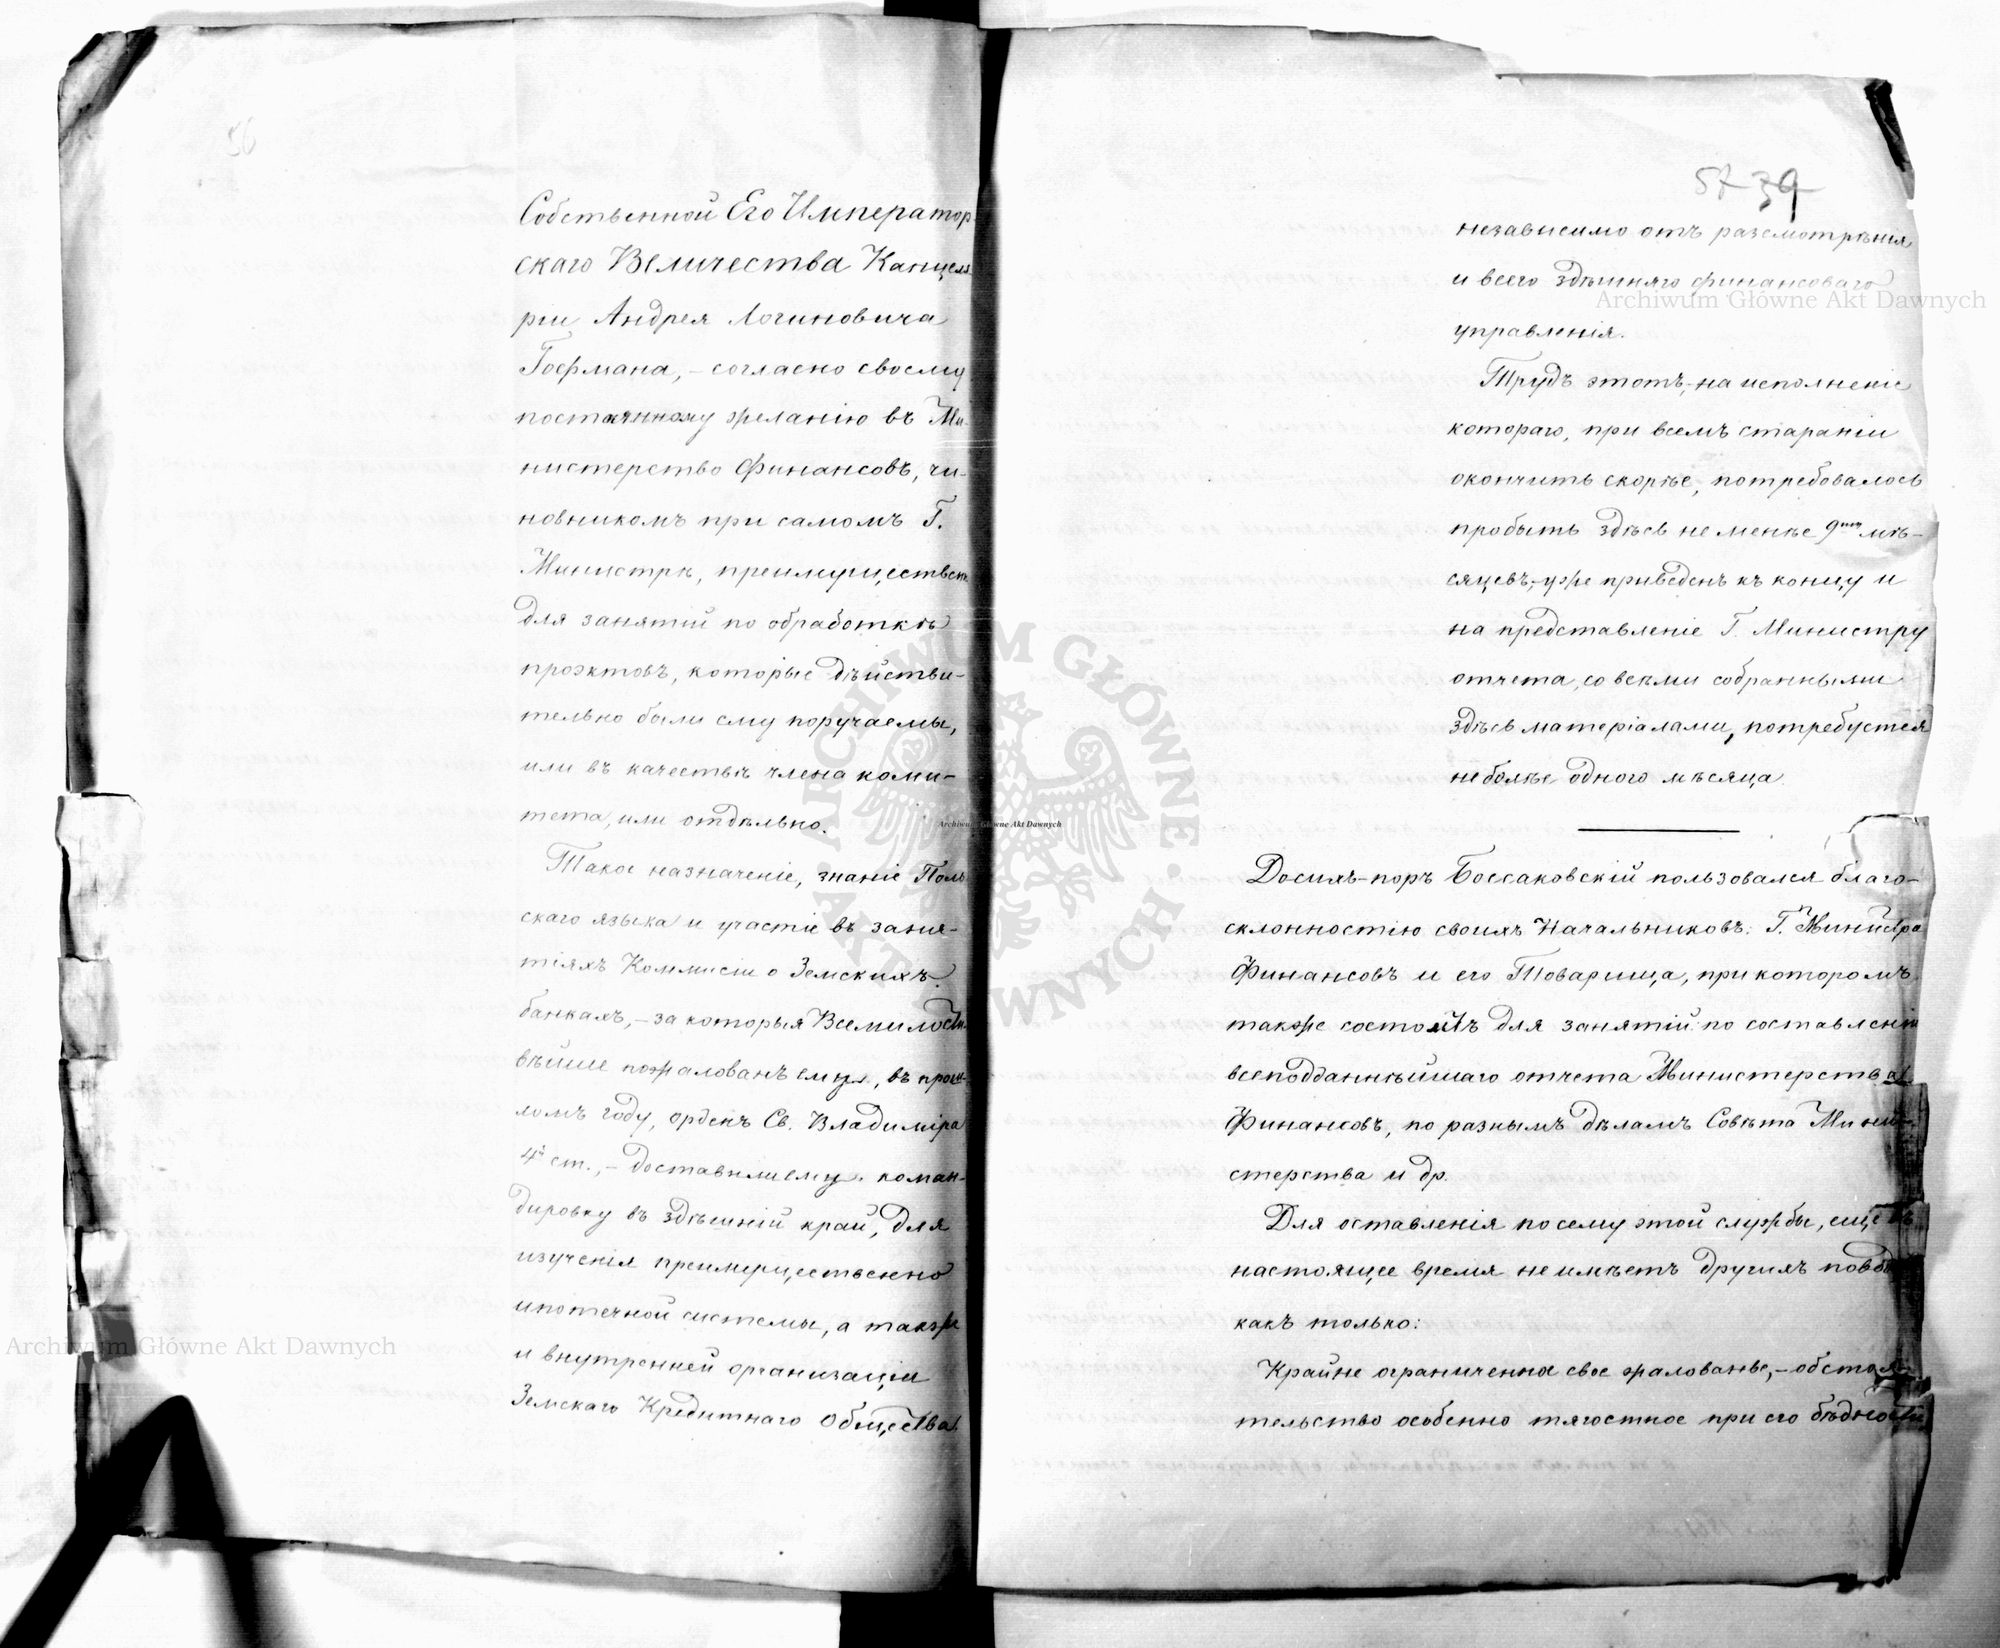 56
Собственной Его Император-
скаго Величества Канцеля
ріи Андрея Логиновича
Гофмана, – согласно своему
постоянному желанію въ Ми-
нистерство Финансовъ, чи-
новникомъ при самомъ Г.
Министрѣ, преимуществен
для занятій по обработкѣ
проэктовъ, которые дѣйстви-
тельно были ему поручаемы,
или въ качествѣ члена коми-
тета, или отдѣльно.
Такое назначеніе, знаніе Поль
скаго языка и участіе въ заня-
тіяхъ Коммисіи о Земскихъ
банкахъ, – за которыя Всемилости
вѣйше пожалованъ ему, въ прош-
ломъ году, орденъ Св. Владиміра
4й ст., – доставили ему коман-
дировку въ здѣшній край, для
изученія преимущественно
ипотечной системы, а также
и внутренней организаціи
Земскаго Кредитнаго Общества
57 39
независимо отъ разсмотрѣнія
и всего здѣшняго финансоваго
управленія.
Трудъ этотъ, – на исполненіе
котораго, при всемъ стараніи
окончить скорѣе, потребовалось
пробыть здѣсь не менѣе 9ти мѣ-
сяцевъ, – уже приведенъ къ концу и
на представленіе Г. Министру
отчета, со всѣми собранными
здѣсь матеріалами, потребуется
не болѣе одного мѣсяца.
Досихъ-поръ Боссаковскій пользовался благо-
склонностію своихъ Начальниковъ: Г. Министра
Финансовъ и его Товарища, при которомъ
также состоитъ для занятій: по составленію
всеподданнѣйшаго отчета Министерства
Финансовъ, по разнымъ дѣламъ Совѣта Мини-
стерства и др.
Для оставленія посему этой службы, еще въ
настоящее время не имѣетъ другихъ
какъ только:
Крайне ограниченное свое жалованье, – обстоя-
тельство особенно тягостное при его бѣдности
Archiwum Główne Akt Dawnych
Archiwum Główne Akt Dawnych
Archiwum Główne Akt Dawnych
ARCHIWUM GŁÓWNE AKT DAWNYCH